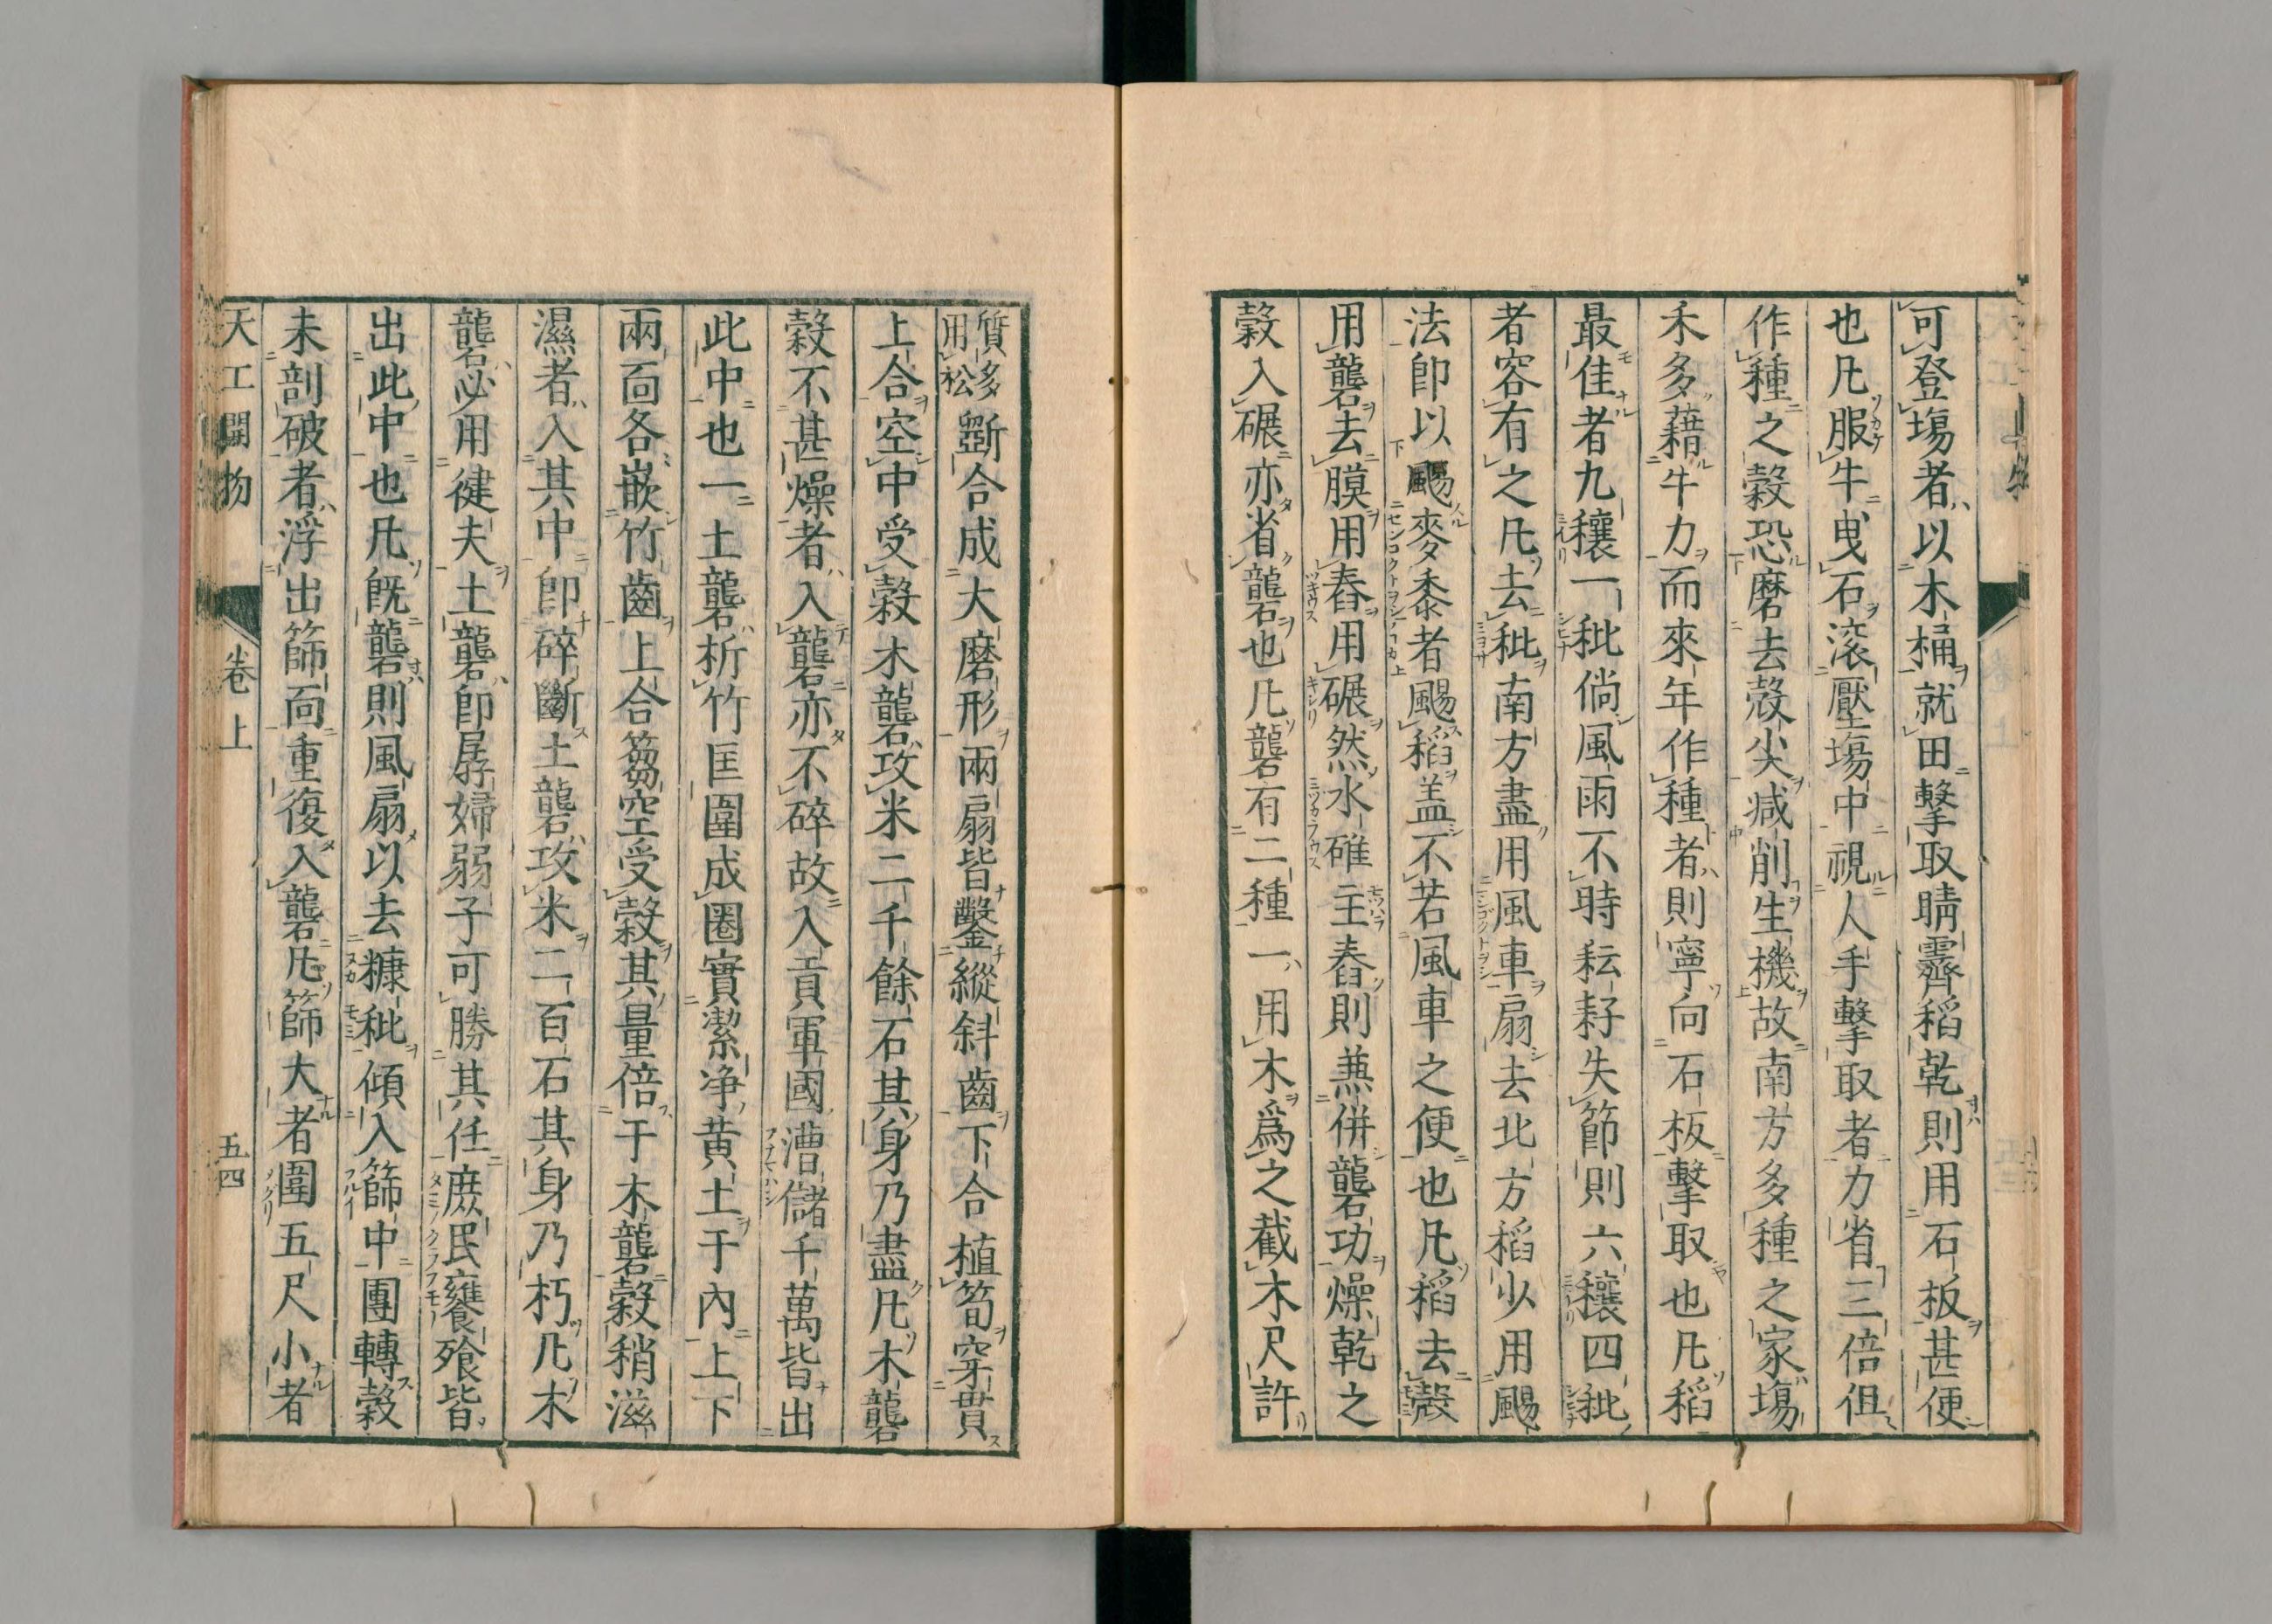 可登場者以木桶就田擊取晴霽稻乾則用石板甚便
也凡服牛曳石滚壓場中視人手擊取者力省三倍但
作種之穀恐磨去殼尖减削生機故南方多種之家場
禾多藉牛力而來年作種者則寧向石板擊取也凡稻
最佳者九穰一秕倘風雨不時耘耔失節則六穰四秕
者容有之凡去秕南方盡用風車扇去北方稻少用颺
法即以颺麥黍者颺稻盖不若風車之便也凡稻去殼
用礱去膜用舂用碾然水碓主舂則兼併礱功燥乾之
穀入碾亦省礱也凡礱有二種一用木爲之截木尺許
質多用松斵合成大磨形兩扇皆鑿縱斜齒下合植筍穿貫
上合空中受穀木礱攻米二千餘石其身乃盡凡木礱
穀不甚燥者入礱亦不碎故入貢軍國漕儲千萬皆出
此中也一土礱析竹匡圍成圈實潔淨黄土于內上下
兩面各嵌竹齒上合篘空受穀其量倍于木礱穀稍滋
濕者入其中即碎斷土礱攻米二百石其身乃朽凡木
礱必用健夫土礱即孱婦弱子可勝其任庶民饔飱皆
出此中也凡既礱則風扇以去糠秕傾入篩中團轉穀
未剖破者浮出篩面重復入礱凡篩大者圍五尺小者
天工開物 卷上 五四